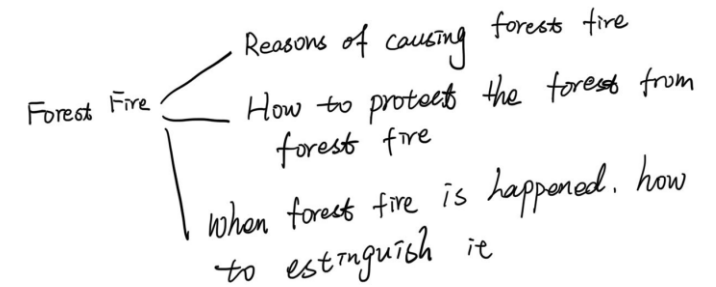 Reasons of causing forest fire
Forest Fire
How to protect the forest from
forest fire
When forest fire is happened. how
to estinguish it